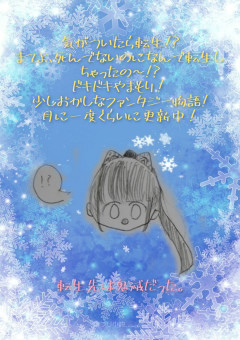 気がついたら転生!?
まてよ、死んでないのになんで転生し
ちゃったの〜!?
ドキドキやまもり!
少しおかしなファンタジー物語!
月に一度くらいに更新中!
!?
転生先は
だった。